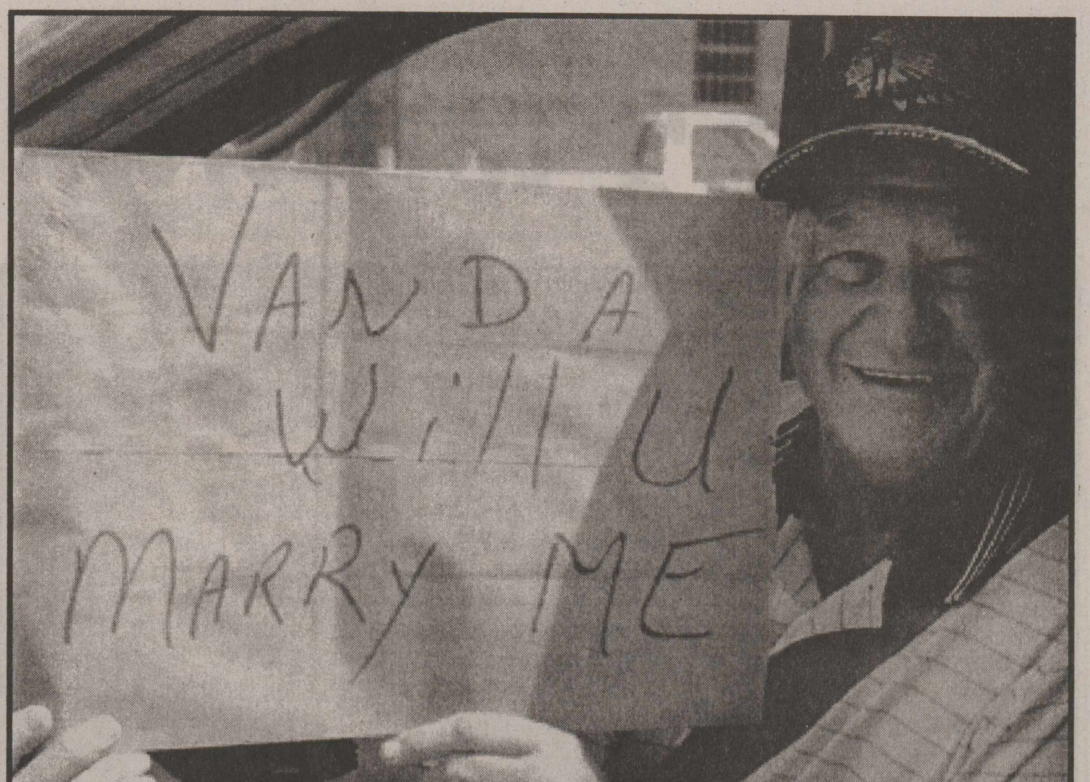 VANDA
Will U
MARRY ME